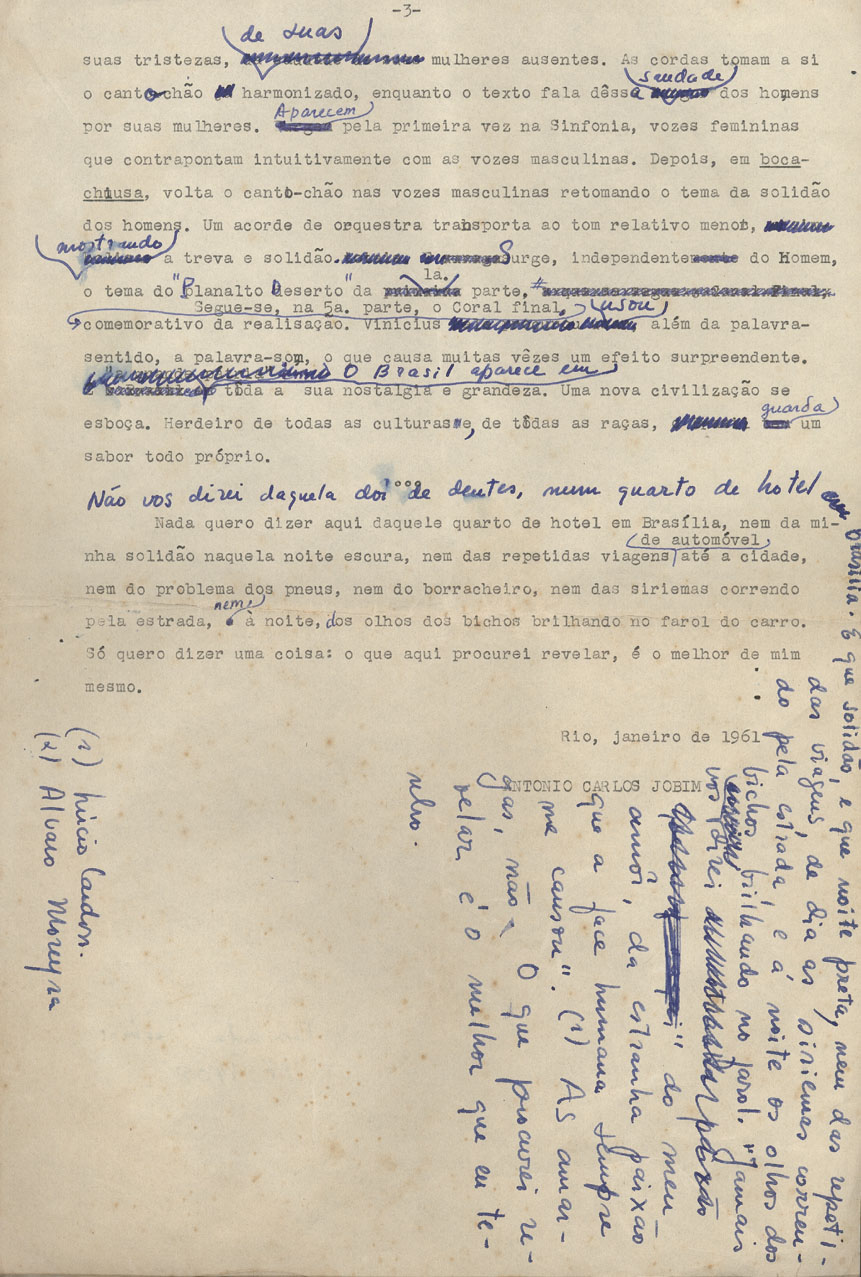 -3-
de suas
suas tristezas, mulheres ausentes. As cordas tomam a si
saudade
o canto chão harmonizado, enquanto o texto fala dêssa dos homens
Aparecem
por suas mulheres. pela primeira vez na Sinfonia, vozes femininas
que contrapontam intuitivamente com as vozes masculinas. Depois, em boca-
chiusa, volta o canto-chão nas vozes masculinas retomando o tema da solidão
dos homens. Um acorde de orquestra transporta ao tom relativo menor,
mostrando
a treva e solidão. Surge, independente do Homem,
1a.
o tema do "Planalto Deserto" da parte,
Segue-se, na 5a. parte, o Coral final, usou
comemorativo da realisação. Vinicius além da palavra-
sentido, a palavra-som, o que causa muitas vêzes um efeito surpreendente.
O Brasil aparece em
tôda a sua nostalgia e grandeza. Uma nova civilização se
guarda
esboça. Herdeiro de todas as culturas, de tôdas as raças, um
sabor todo próprio.
°°°
Não vos direi daquela dor de dentes, num quarto de hotel em
Nada quero dizer aqui daquele quarto de hotel em Brasília, nem da mi-
de automóvel
nha solidão naquela noite escura, nem das repetidas viagens até a cidade,
nem do problema dos pneus, nem do borracheiro, nem das siriemas correndo
nem
pela estrada, à noite, dos olhos dos bichos brilhando no farol do carro.
Só quero dizer uma coisa: o que aqui procurei revelar, é o melhor de mim
mesmo.
Rio, janeiro de 1961
ANTONIO CARLOS JOBIM
Brasília. E que solidão, e que noite preta, nem das repeti-
das viagens, de dia as siriemas corren-
do pela estrada e à noite os olhos dos
bichos brilhando no farol. "Jamais
vos direi
do meu
amôr, da estranha paixão
que a face humana sempre
me causou". (1) As amar-
gas, não, O que procurei re-
velar, é o melhor que eu te-
nho.
(1) Lúcio Cardoso.
(2) Alvaro Moreyra